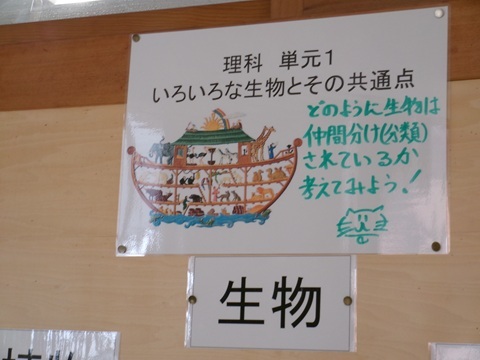 理科 単元1
いろいろな生物とその共通点
どのように生物は
仲間分け(分類)
されているか
考えてみよう!
生物